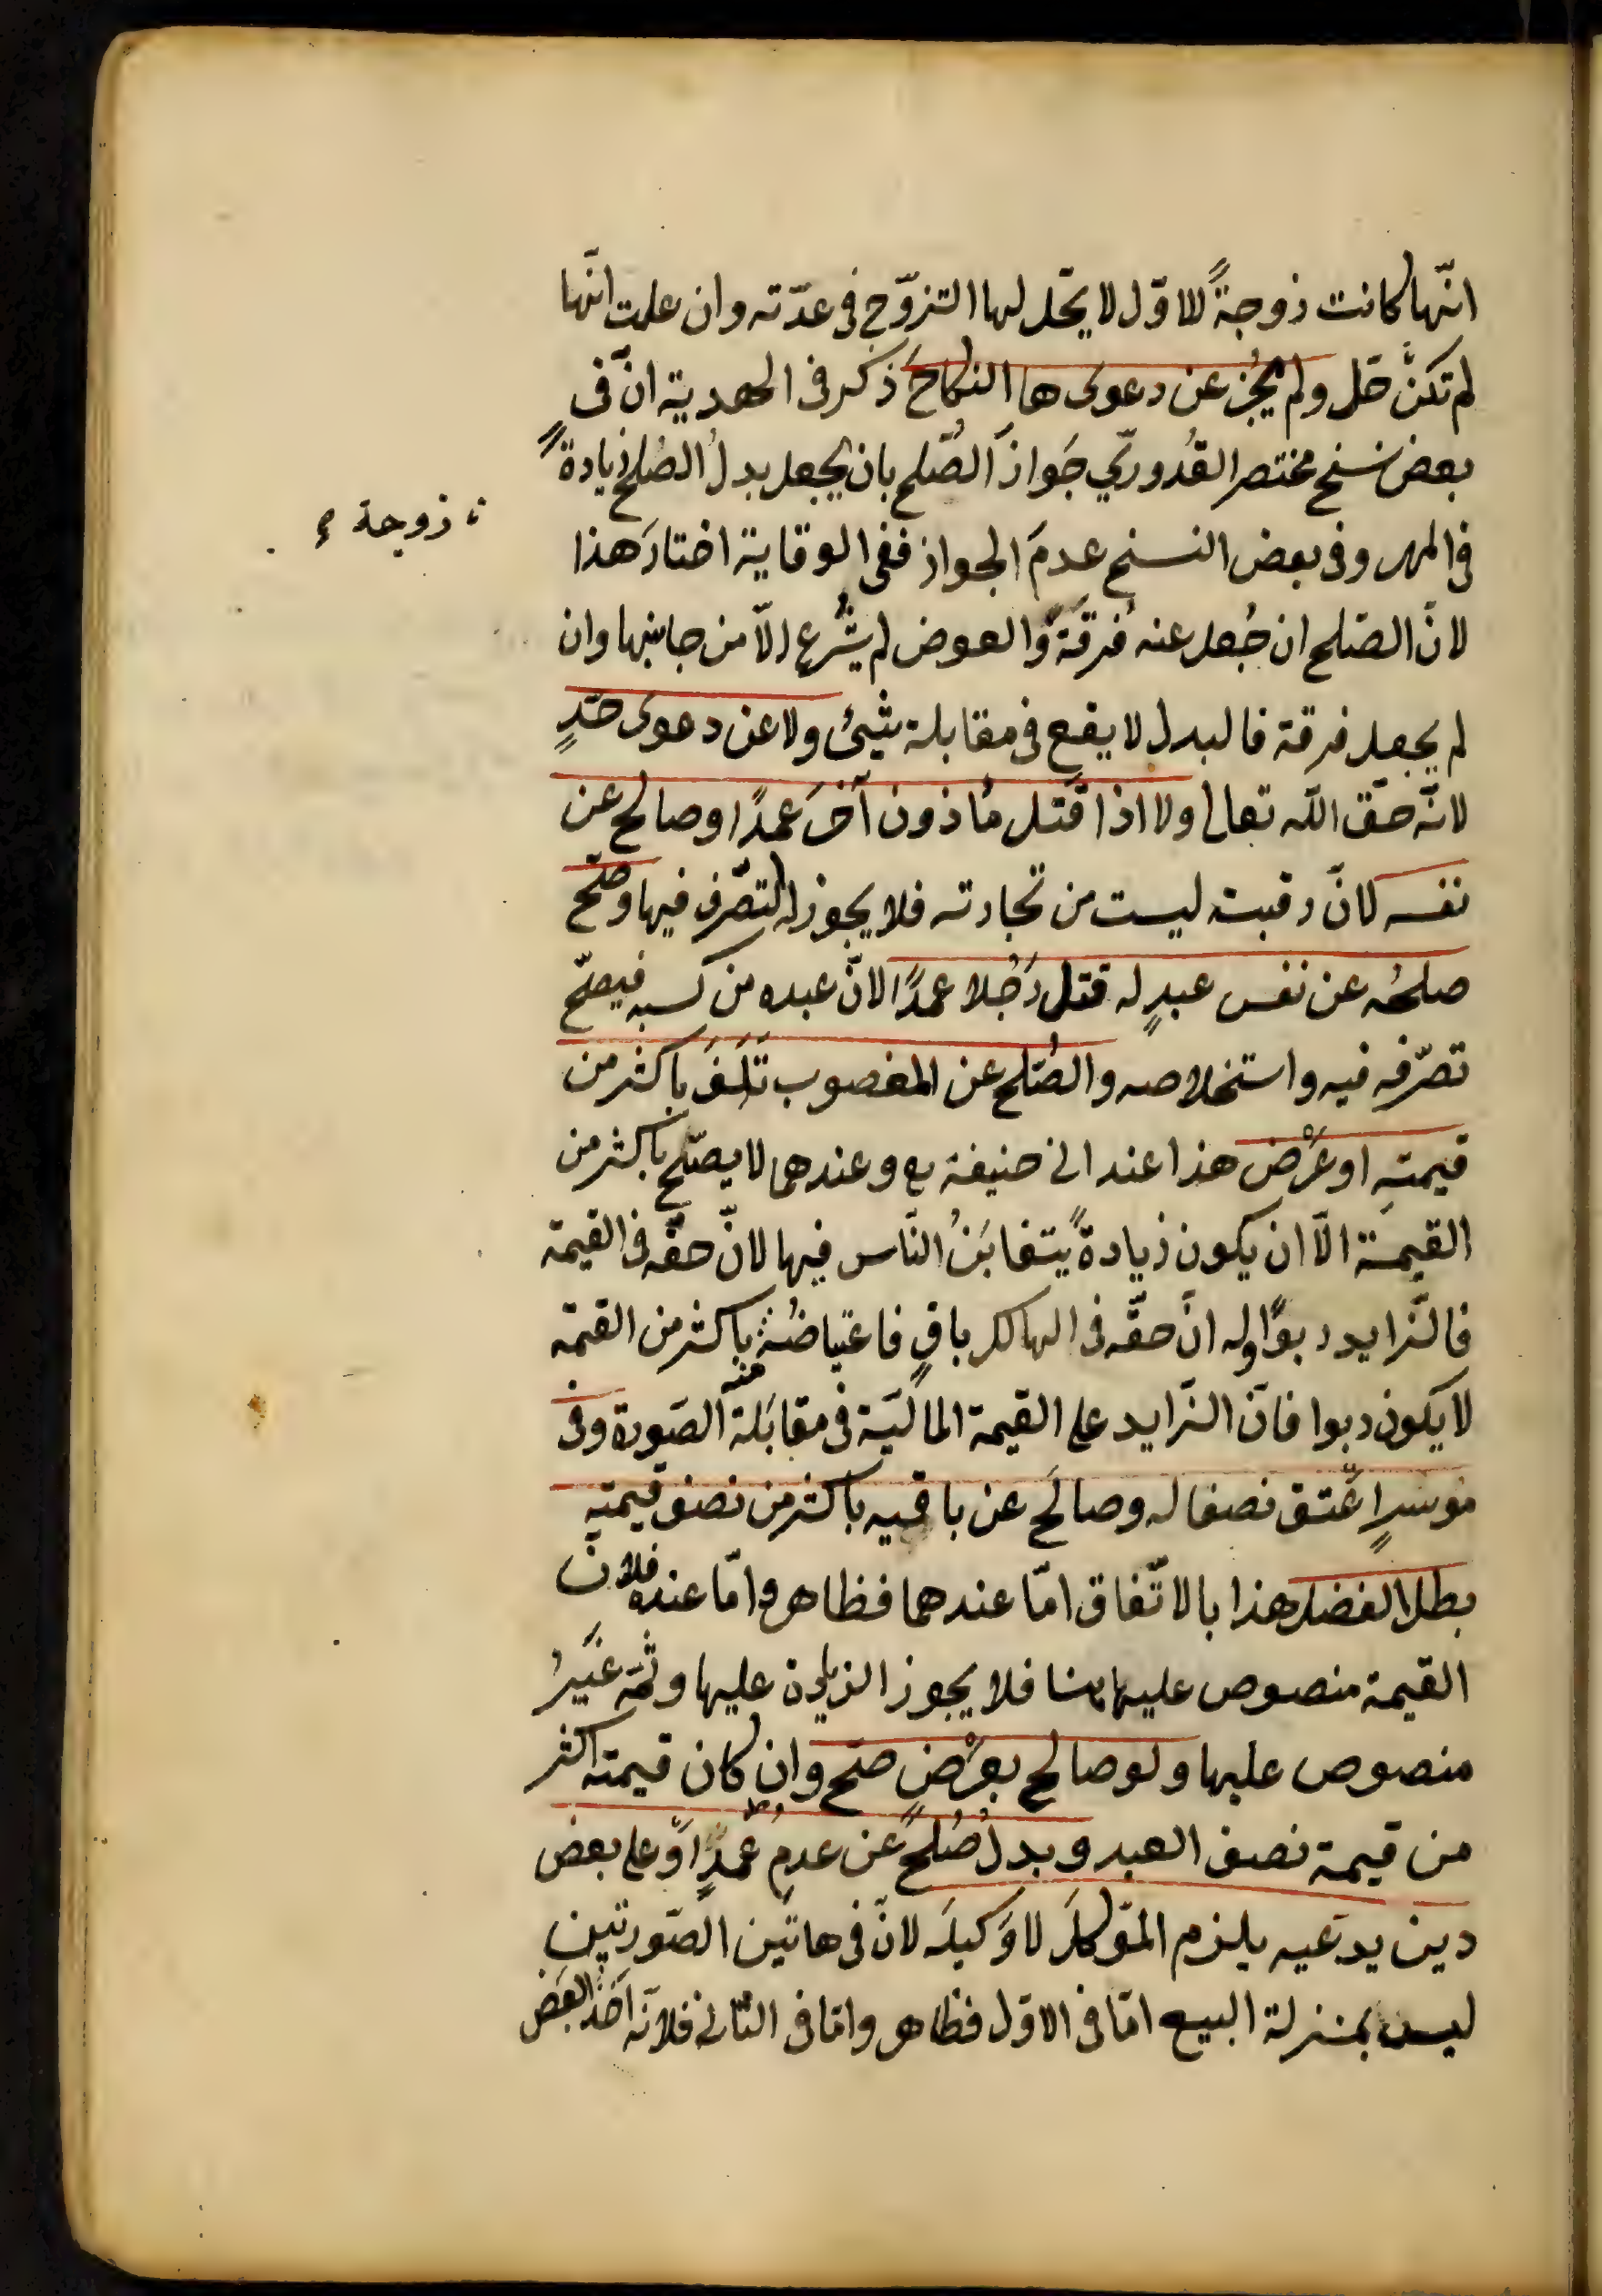 انّها كانت زوجةً للاوّل لا يحّل لها التزوّج فى عدّته وان علمت انّها
لم تكن حَل ولم يجُز عن دعوى ها النكاحَ ذكر فى الهدية انّ فى
بعض نسخ مختصر القُدورىّ جَوازَ الصُّلح بان يجعل بدلُ الصُلح زيادةً
زوجة
فى المهر وفى بعض النسخ عدمَ الجواز ففى الوقاية اختارَ هذا
لانّ الصّلح ان جُعل عنه فُرقَةً والعوض لم يُشرع الّا من جانبها وان
لم يجعل فرقة فالبدل لا يقع فى مقابلة شىئ ولا عن دعوى حَدٍ
لانّه حقّ الله تعالى ولا اذا قَتَل مُاذون آخَرَ عمدًا وصالح عن
نفسه لانّ رقبته ليست من تجارته فلا يجوز له التصّرف فيها وصّح
صلحُه عن نفس عبدٍ له قتل رَجُلا عمدًا لانّ عبده من كسبه فيصّح
تصرّفه فيه واستخلاصه والصُّلح عن المغصوب تَلَفَ باكثر من
قيمتِه او عَرْضٍ هذا عند ابى حنيفة رح وعندهما لا يصّح باكثر من
القيمة الّا ان يكون زيادةً يتغابَنُ النّاس فيها لانّ حقّه فى القيمة
فالزّايد ربوًا وله انّ حقّه فى الهالك باقٍ فاعتياضُه باكثر من القيمة
منه
لا يكون ربوا فانّ الزّايد على القيمة الماليّة فى مقابَلة الصّورة وفى
موسرٍ اعْتق نصفا له وصالَح عن باقيه باكثر من نصف قيمته
بطل الفضل هذا بالاتّفاق امّا عندهما فظاهر وامّا عنده فلانّ
القيمة منصوص عليها هنا فلا يجوز الزيادة عليها وثمّه غَيرُ
منصوص عليها ولو صالح بعَرْضٍ صّح وان كان قيمته اكثر
من قيمة نصف العبد وبدلُ صُلحٍ عن دمِ عمدٍ او على بعض
دين يدّعيه يلزم الموّكلَ لا وَكيلَه لانّ فى هاتَين الصّورتين
ليس بمنزلة البيع امّا فى الاوّل فظاهر وامّا فى الثّانى فلانّه اَخذُ البعض